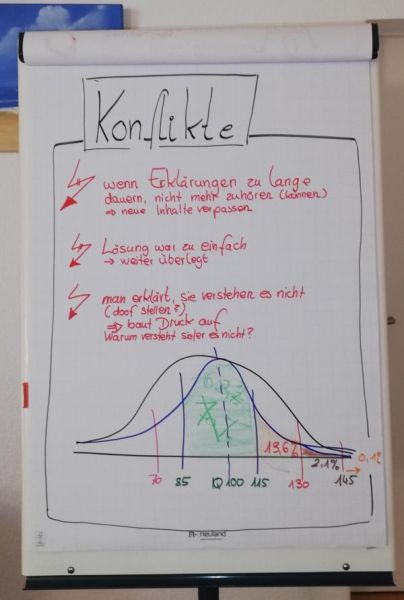 Konflikte
wenn Erklärungen zu lange
dauern, nicht mehr zuhören (können)
⇒ neue Inhalte verpassen
Lösung war zu einfach
→ weiter überlegt
man erklärt, sie verstehen es nicht
(doof stellen?)
⇒ baut Druck auf
Warum versteht sie/er es nicht?
13,6%
2,1%
0,1%
70 85 IQ 100 115 130 145
neuland